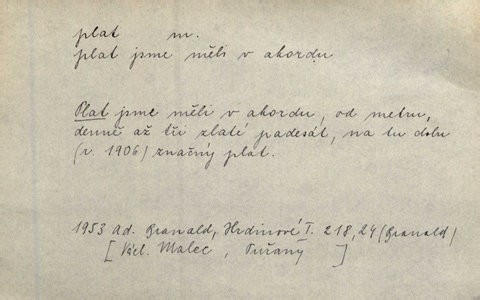 plat m.
plat jsme měli v akordu
Plat jsme měli v akordu, od metru,
denně až tři zlaté padesát, na tu dobu
(r. 1906) značný plat.
1953 Ad. Branald, Hrdinové I. 218,24 (Branald)
[Václ. Malec, Tuřany ]